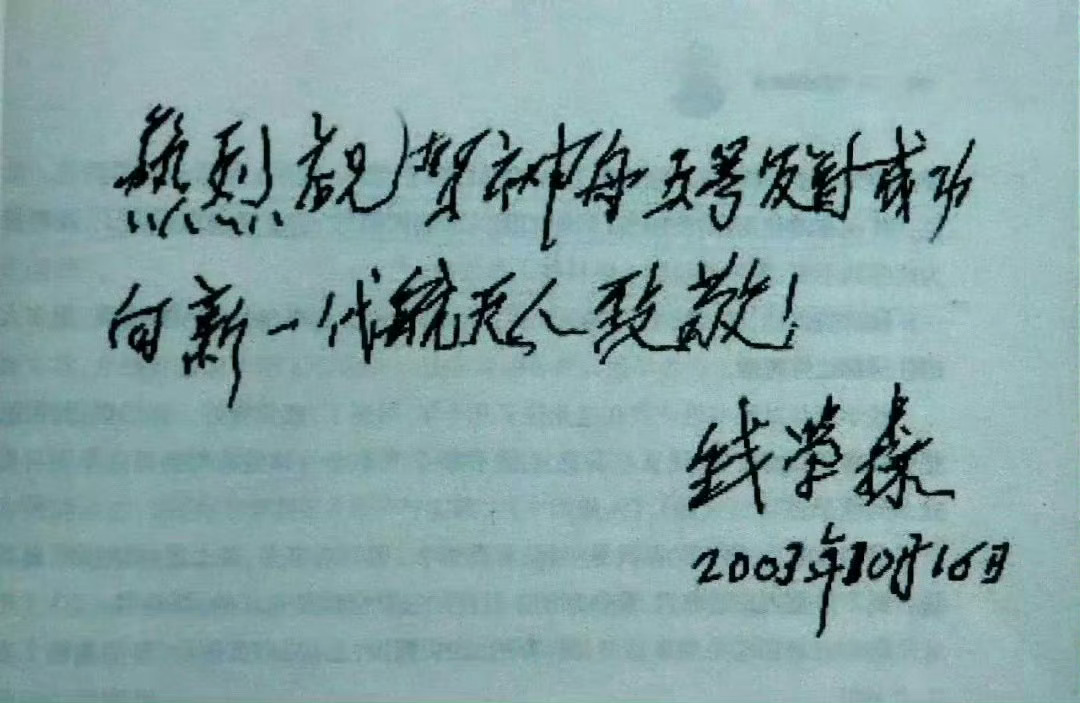 热烈祝贺神舟五号发射成功
向新一代航天人致敬!
钱学森
2003年10月16日